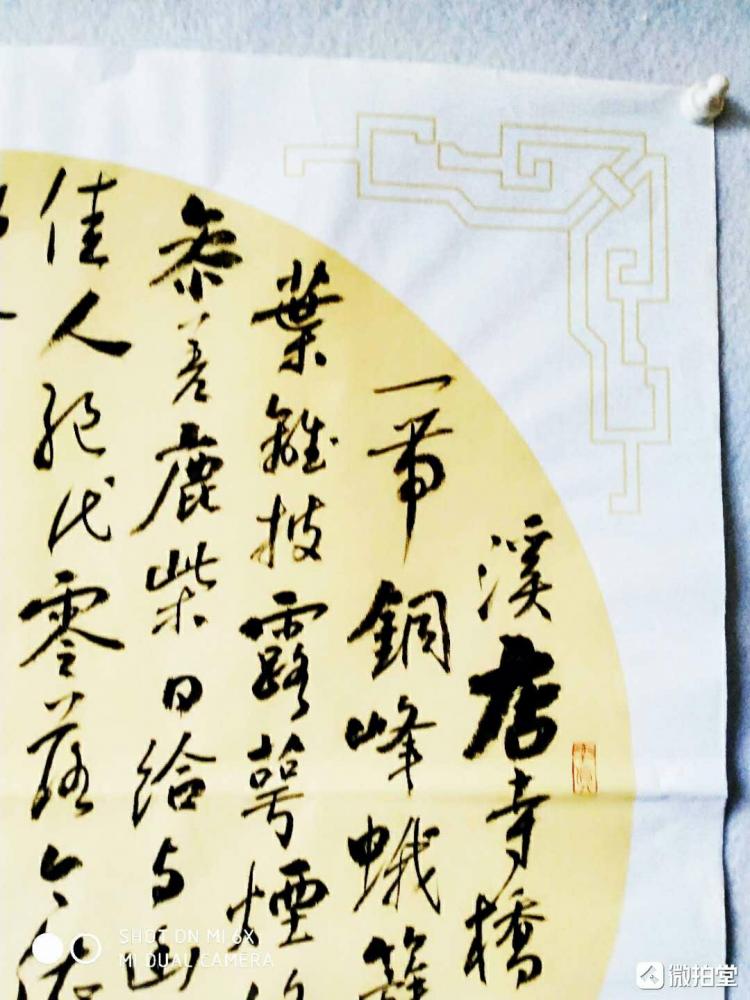 溪店寺橋
一帶銅峰蛾
葉離披露萼煙
參差鹿柴日給与
佳人絕代零落今
SHOT ON MI 6X
MI DUAL CAMERA
微拍堂